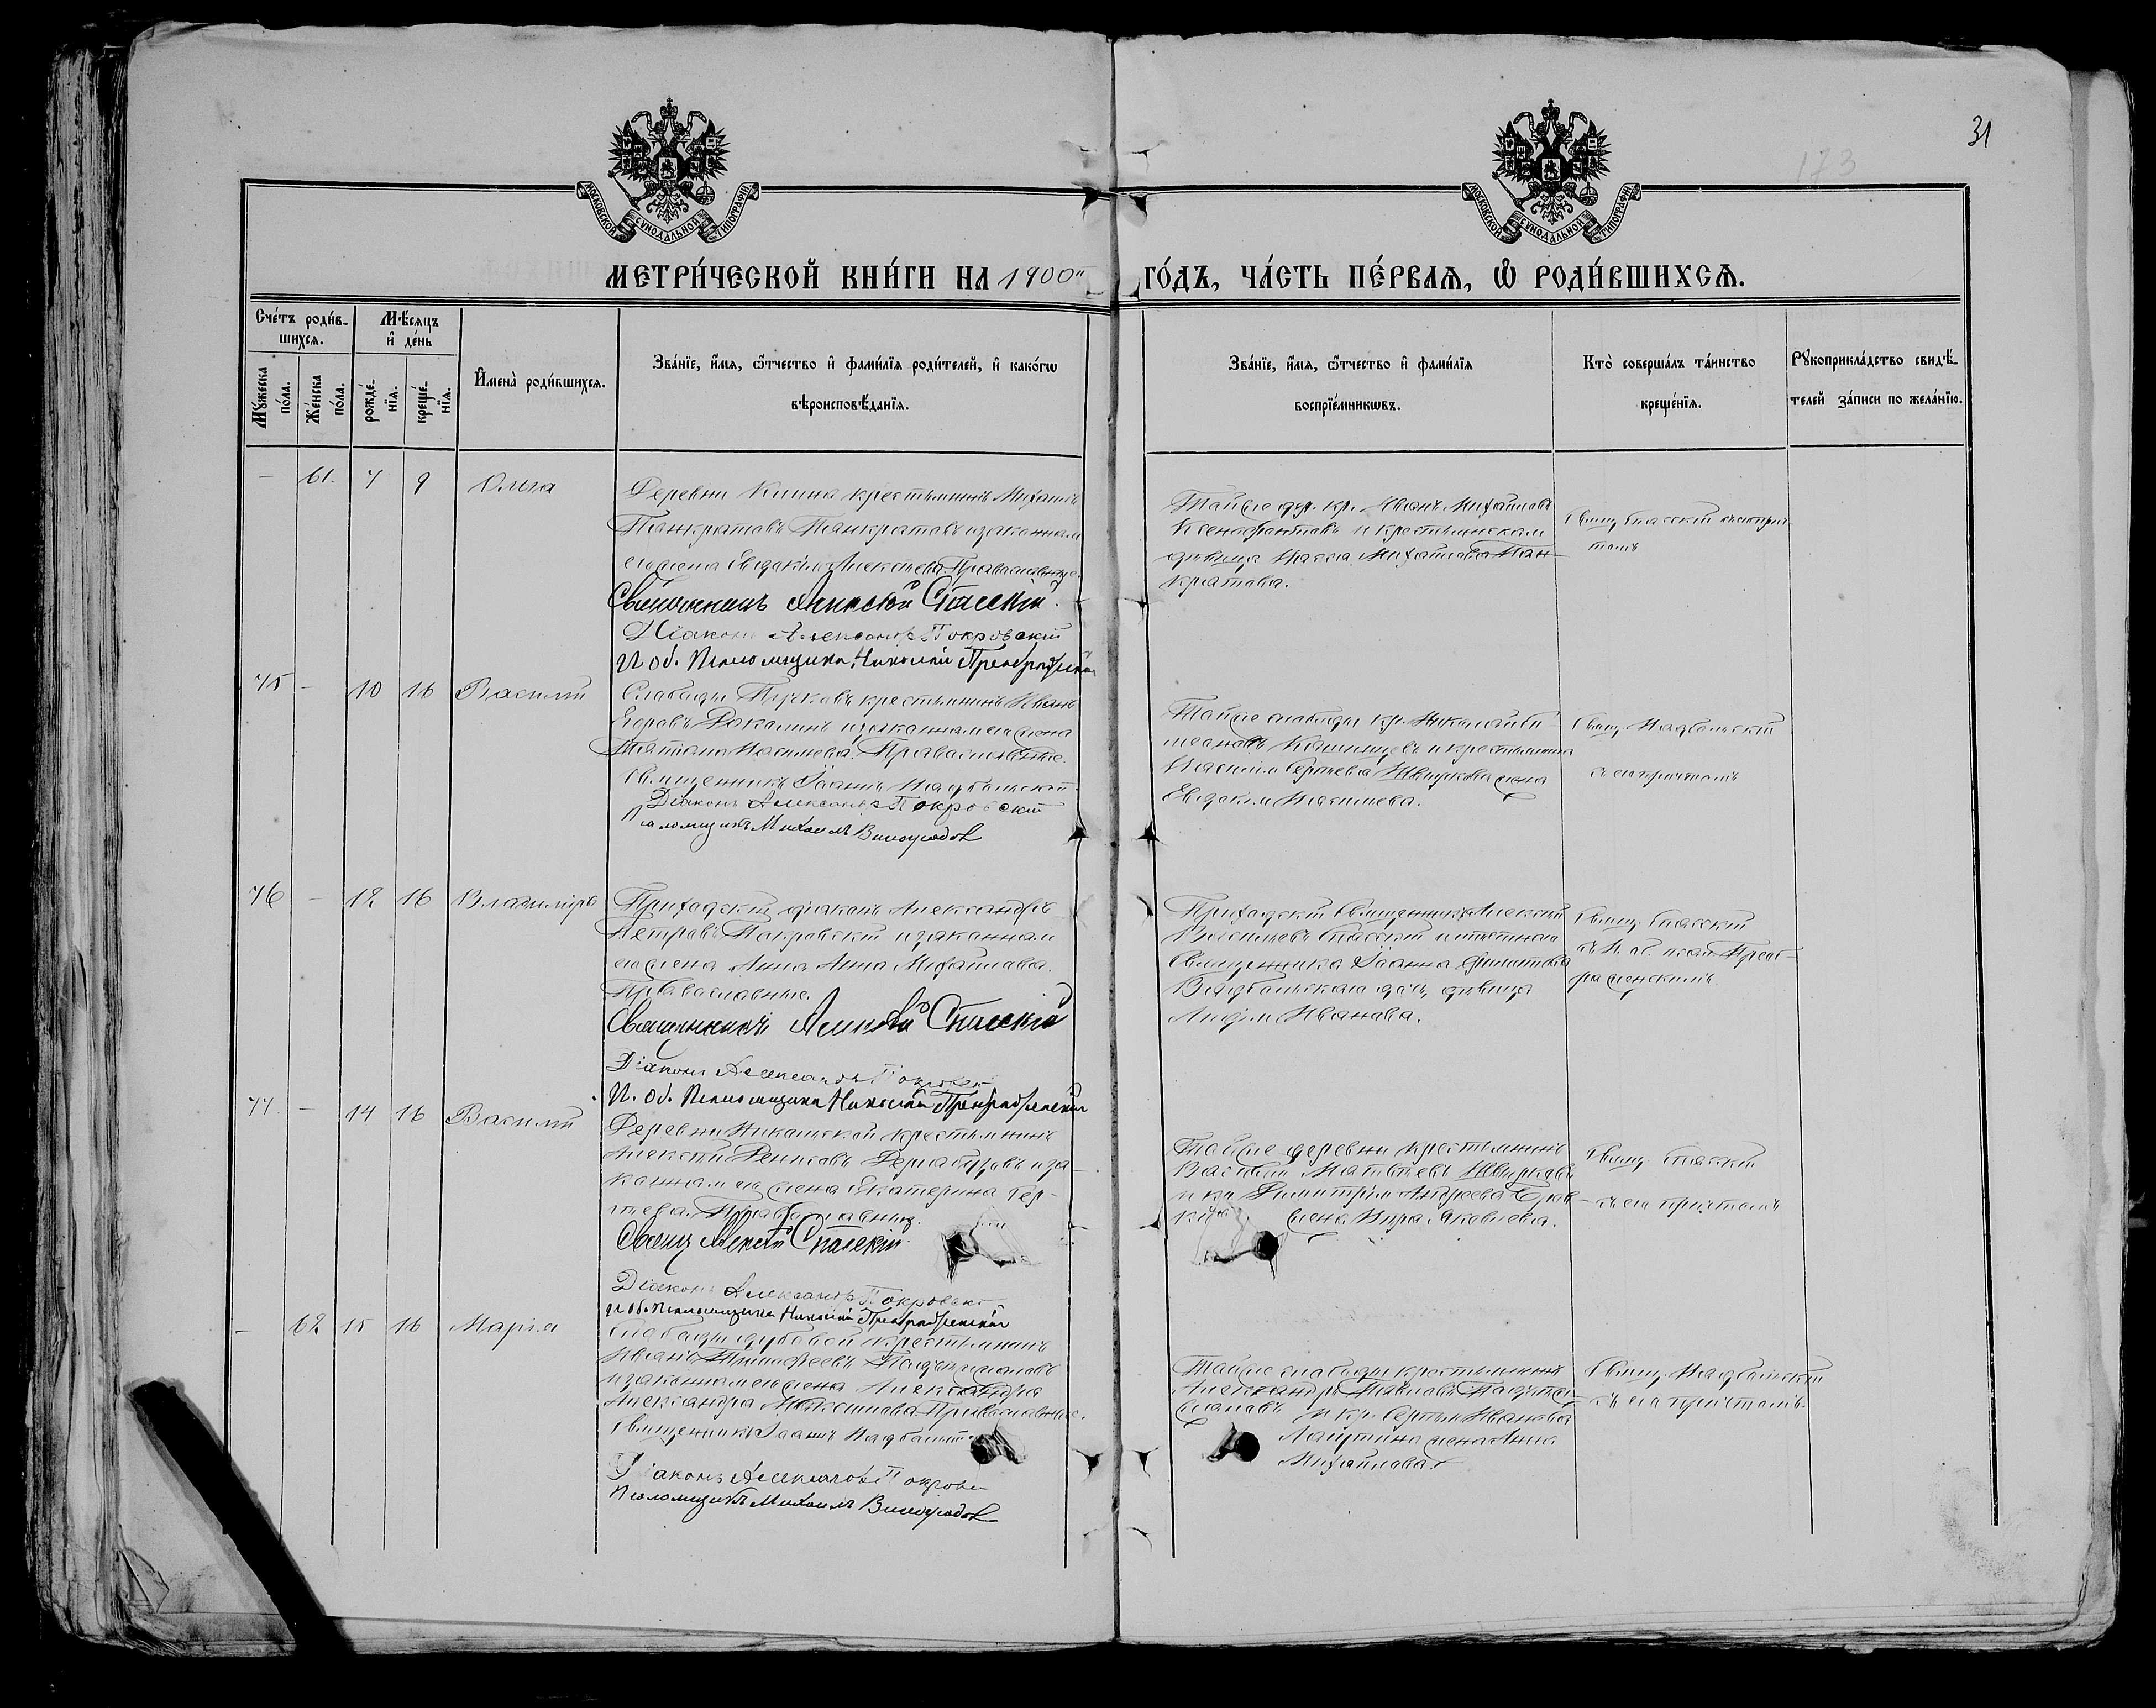 31
173
МОСКОВСКОЙ СУНОДАЛЬНОЙ ТИПОГРАФІИ
МОСКОВСКОЙ СУНОДАЛЬНОЙ ТИПОГРАФІИ
МЕТРИ́ЧЕСКОЙ КНИ́ГИ НА 1900" ГО́ДЪ, ЧА́СТЬ ПЕ́РВАѦ, Ѡ РОДИ́ВШИХСѦ.
Сче́тъ роди́в-
шихсѧ.
Мѣ́сѧцъ
и де́нь
Мꙋ́жеска
по́ла.
Же́нска
по́ла.
рожде́-
нїѧ.
креще́-
нїѧ.
Имена̀ роди́вшихсѧ.
Зва́нїе, и́мѧ, ѻ҆́тчество и фами́лїѧ роди́телей, и како́гѡ
вѣроисповѣ́данїѧ.
Зва́нїе, и́мѧ, ѻ҆́тчество и фами́лїѧ
воспрїе́мникѡвъ.
Кто̀ соверша́лъ та́инство
креще́нїѧ.
Рꙋкоприкла́дство свидѣ́-
телей за́писи по жела́нїю.
— 61. 7 9 Ольга
Деревни Клина крестьянинъ Михаилъ
Панкратовъ Панкратовъ и законная
его жена Евдокія Алексѣева. Православные.
Священникъ Алексѣй Спасскій.
Діаконъ Александръ Покровскій
И. об. Псаломщика Николай Преображенскій
Той же дер. кр. Иванъ Михайловъ
Ксенофонтовъ и крестьянская
дѣвица Михайлова Пан-
кратова.
Свящ. Спасскій съ прич-
томъ
75 — 10 16 Василій
Слободы крестьянинъ Иванъ
Егоровъ и законная его жена
Православные.
Священникъ Іоаннъ
Діаконъ Александръ Покровскій
Псаломщикъ Михаилъ Виноградов
Той же слободы кр. Николай
и крестьянина
Сергѣева жена
Евдокія
Свящ.
съ причтомъ
76 — 12 16 Владиміръ
Приходскій діаконъ Александръ
Петровъ Покровскій и законная
его жена Анна Михайлова.
Православные.
Священникъ Алексѣй Спасскій
Діаконъ Александръ Покровскій
И. об. Псаломщика Николай Преображенскій
Приходскій Священникъ Алексѣй
Васильевъ Спасскій и
Священника Іоанна
дочь, дѣвица
Лидія Иванова.
Свящ. Спасскій
съ И. об. псал. Преоб-
раженскимъ.
77. — 14 16 Василій
Деревни Никольской крестьянинъ
Алексѣй Денисовъ и за-
конная его жена Екатерина Сер-
гѣева. Православные.
Свящ Алексѣй Спасскій
Діаконъ Александръ Покровскій
И об. Псаломщика Николай Преображенскій
Той же деревни крестьянинъ
Василій Матвѣевъ
и кр. Димитрія Андреева
жена Вѣра Яковлева.
Свящ. Спасскій
съ его причтомъ
— 62 15 16 Марія
Слободы Дубовой крестьянинъ
Иванъ Тимофеевъ
и законная его жена
Александра Максимова. Православные.
Священникъ Іоаннъ
Діаконъ Александръ Покров
Псаломщикъ Михаилъ Виноградов
Той же слободы крестьянинъ
Александръ Павловъ
и кр. Сергѣя Иванова
жена Анна
Михайлова.
Свящ.
съ его причтомъ.